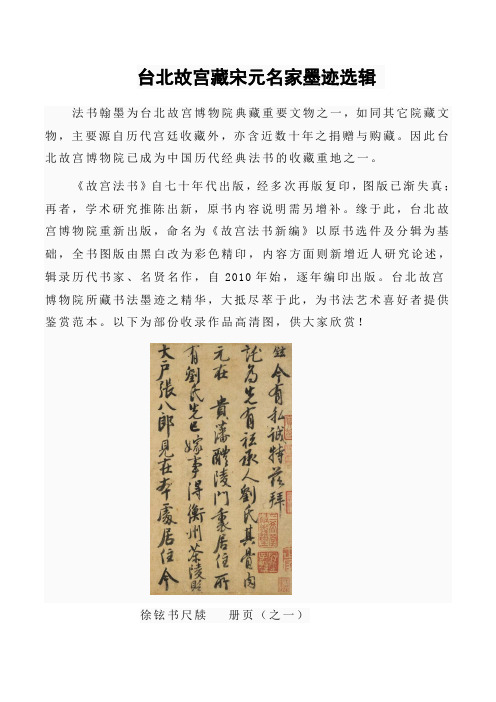 台北故宫藏宋元名家墨迹选辑
法书翰墨为台北故宫博物院典藏重要文物之一，如同其它院藏文
物，主要源自历代宫廷收藏外，亦含近数十年之捐赠与购藏。因此台
北故宫博物院已成为中国历代经典法书的收藏重地之一。
《故宫法书》自七十年代出版，经多次再版复印，图版已渐失真；
再者，学术研究推陈出新，原书内容说明需另增补。缘于此，台北故
宫博物院重新出版，命名为《故宫法书新编》以原书选件及分辑为基
础，全书图版由黑白改为彩色精印，内容方面则新增近人研究论述，
辑录历代书家、名贤名作，自2010年始，逐年编印出版。台北故宫
博物院所藏书法墨迹之精华，大抵尽萃于此，为书法艺术喜好者提供
鉴赏范本。以下为部份收录作品高清图，供大家欣赏！
铉今有私诚特兹拜
託为先有祗承人劉氏其骨肉
元在 貴藩醴陵門裏居住所
有劉氏先已嫁事得衡州茶陵縣
大户張八郎見在本處居住今
徐铉书尺牍 册页（之一）